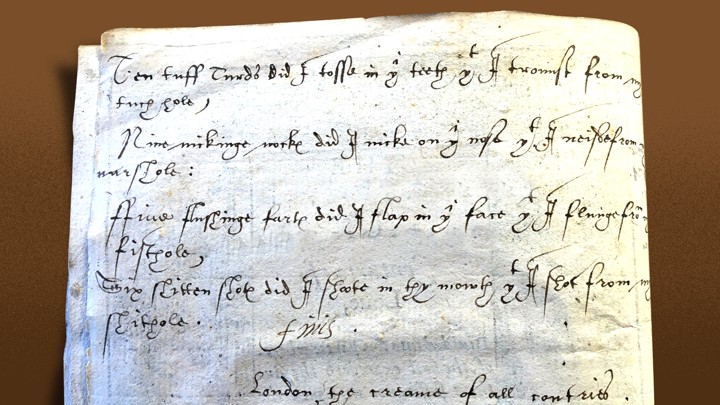 Ten tuff Turds did I tosse in yͬ teeth yͭ I tromst from my
tuch hole,
Nine nickinge nockes did I nicke on yͬ nose yͭ I neissefrom
narshole:
ffive flushinge fartes did I flap in yͬ face yͭ I flungefrō
fisthole,
Six shitten shotes did I shoote in thy mowth yͭ I shot from my
shithole.
finis.
London the creame of all contries.